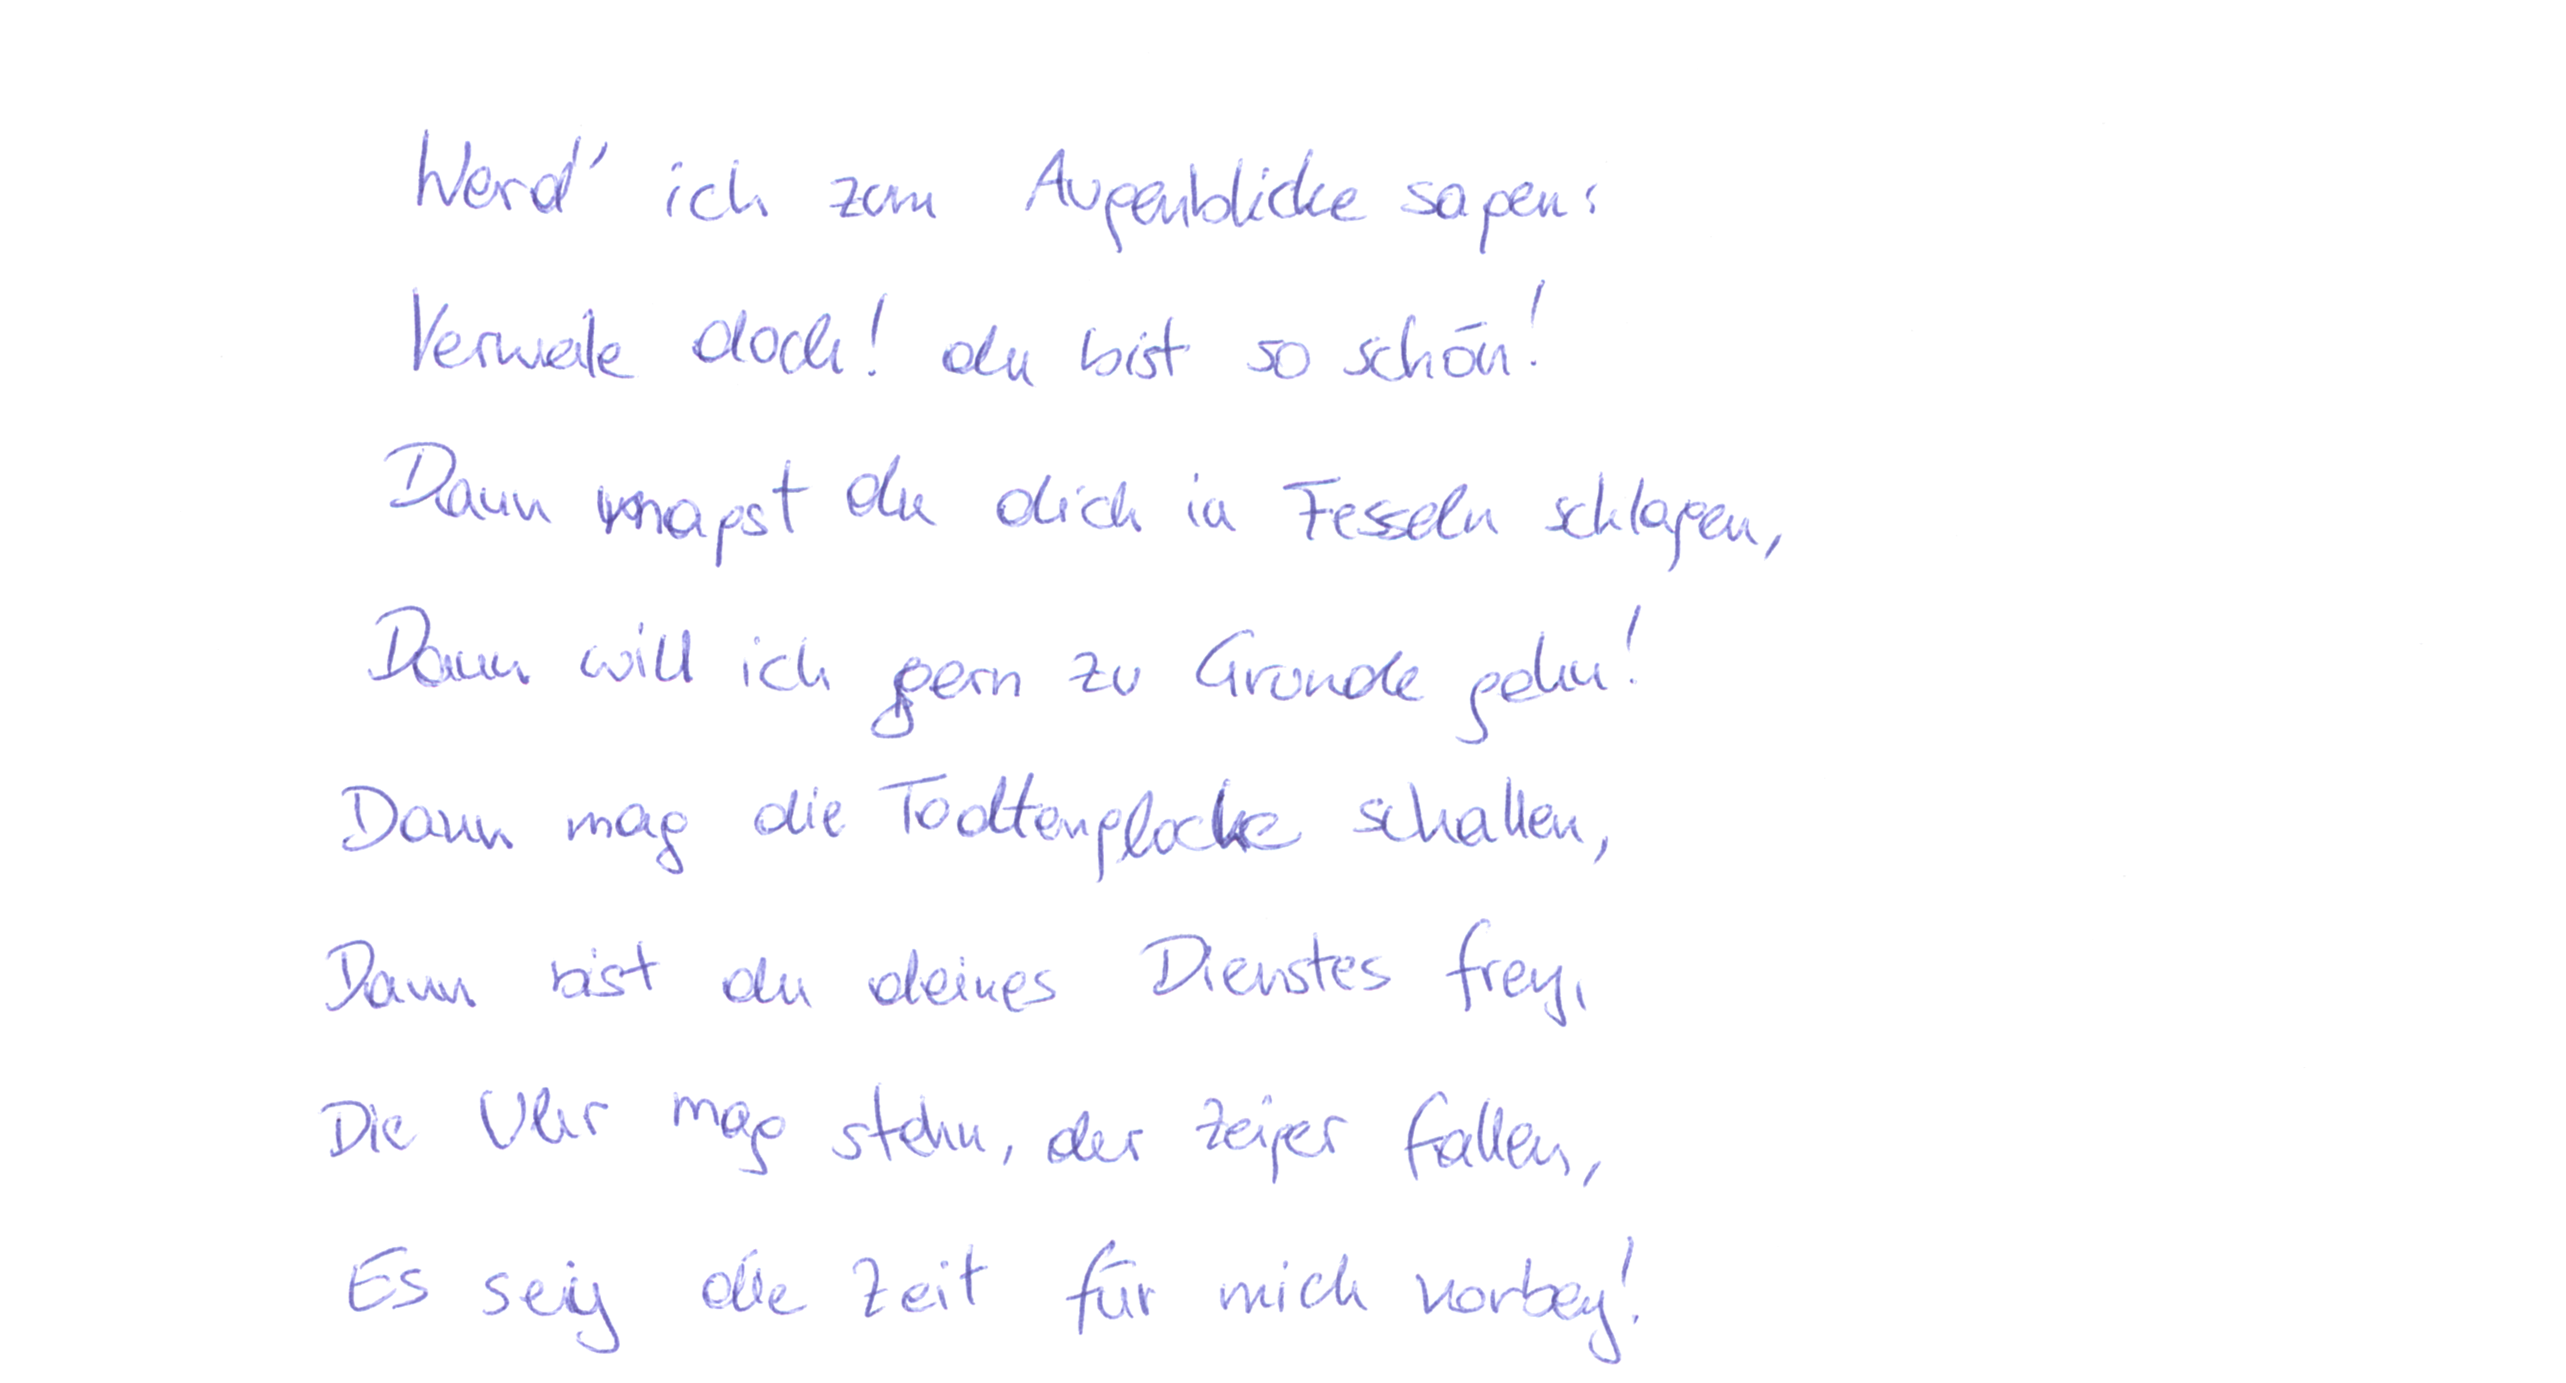 Werd' ich zum Augenblicke sagen:
Verweile doch! du bist so schön!
Dann magst du dich in Fesseln schlagen,
Dann will ich gern zu Grunde gehn!
Dann mag die Todtenglocke schallen,
Dann bist du deines Dienstes frey,
Die Uhr mag stehn, der Zeiger fallen,
Es sey die Zeit für mich vorbey!